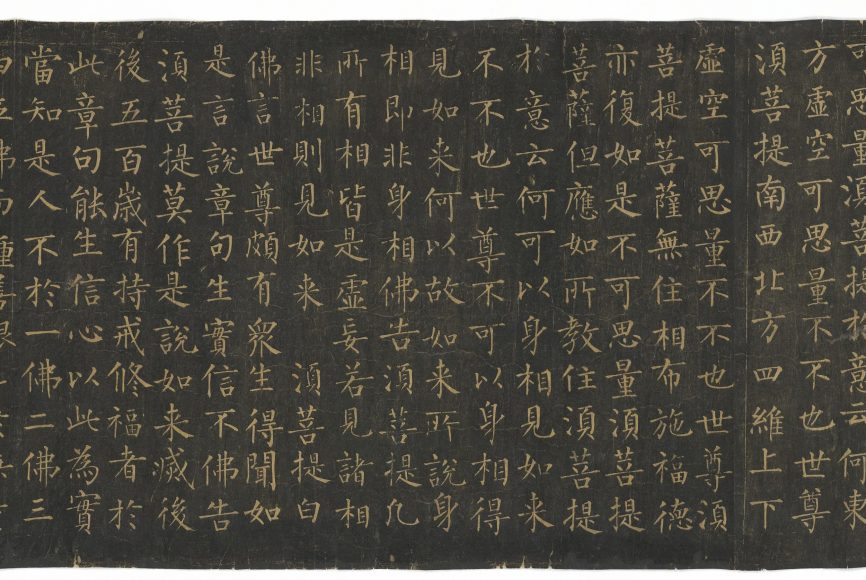 可思量須菩提於意云何東
方虛空可思量不不也世尊
須菩提南西北方四維上下
虛空可思量不不也世尊須
菩提菩薩無住相布施福德
亦復如是不可思量須菩提
菩薩但應如所教住須菩提
於意云何可以身相見如来
不不也世尊不可以身相得
見如来何以故如来所說身
相即非身相佛告須菩提凡
所有相皆是虛妄若見諸相
非相則見如来 須菩提白
佛言世尊頗有衆生得聞如
是言說章句生實信不佛告
須菩提莫作是說如来滅後
後五百歲有持戒修福者於
此章句能生信心以此為實
當知是人不於一佛二佛三
四五佛而種善根